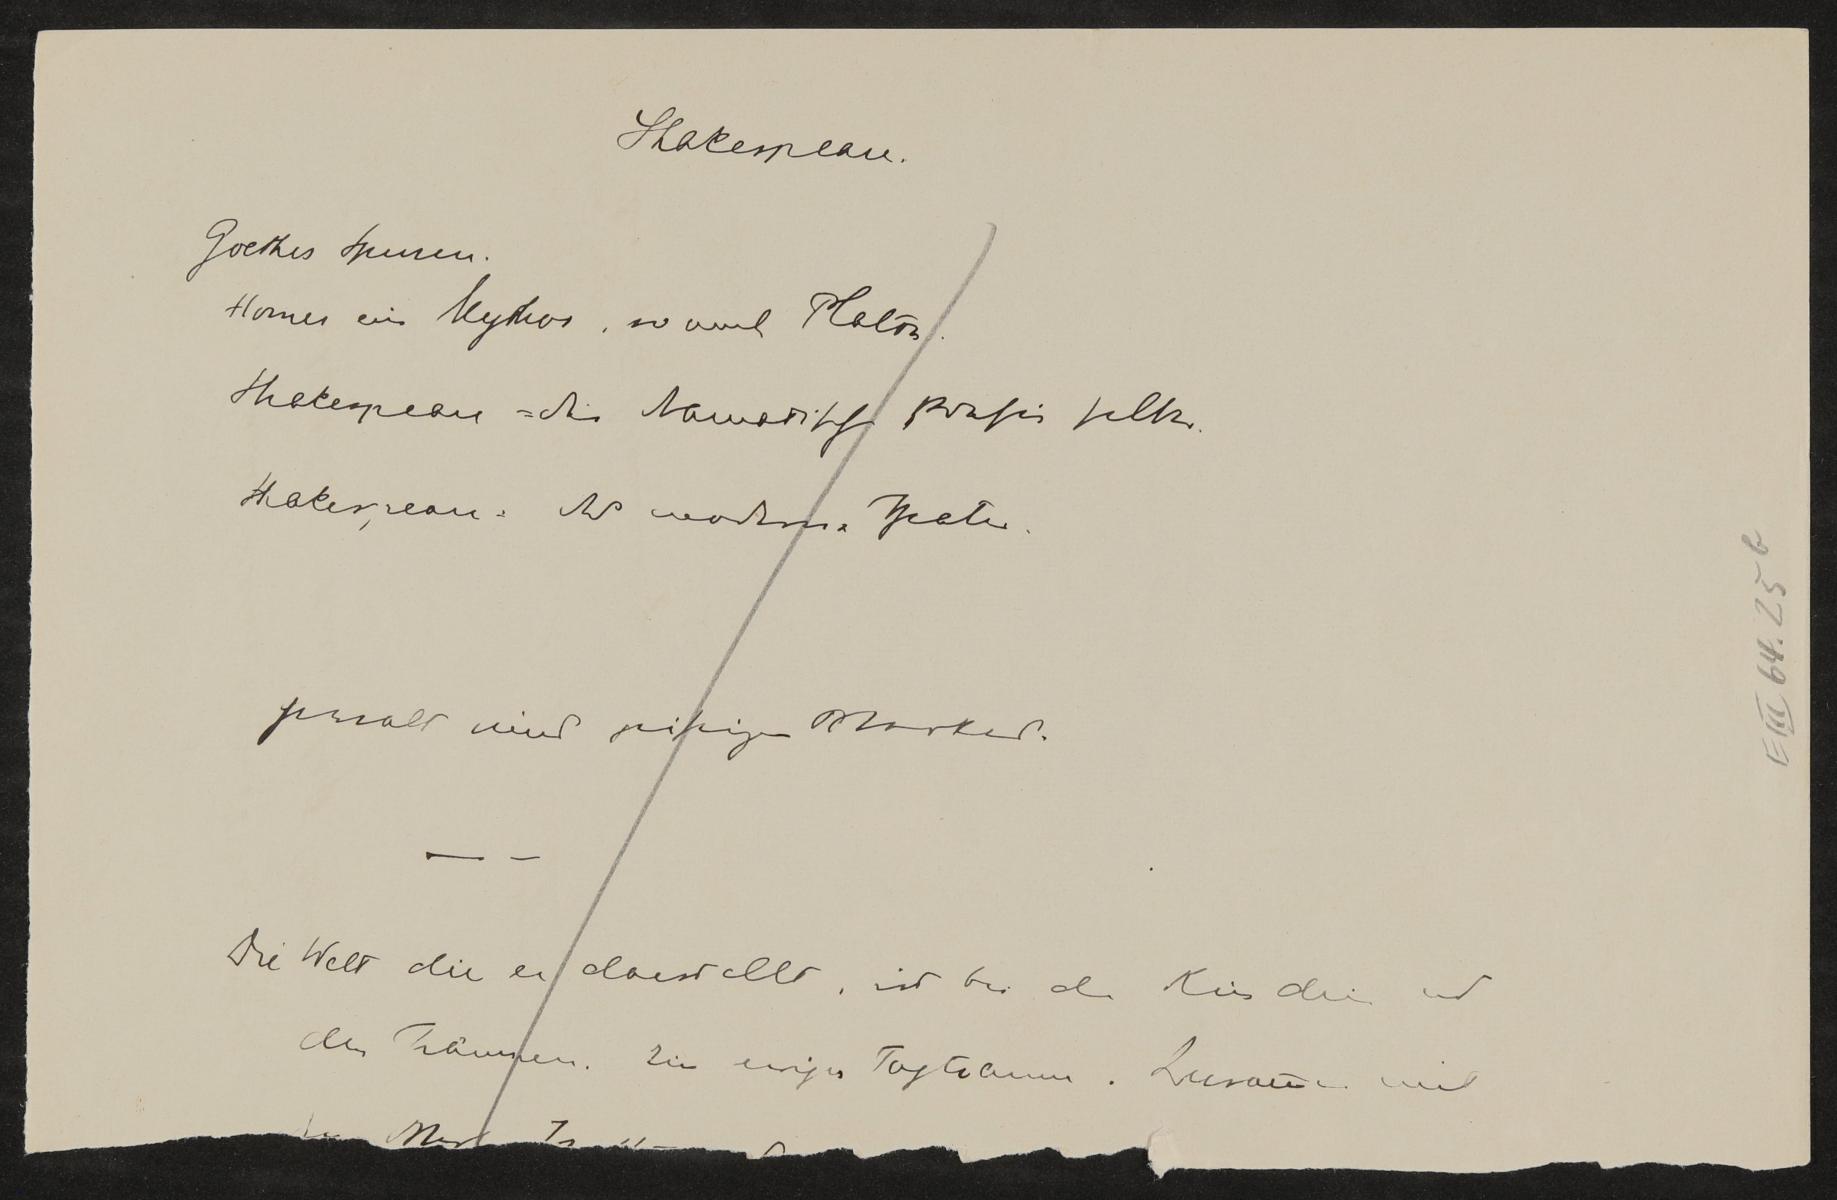 Shakespeare.
Goethes Spuren.
Homer ein Mythos, so und Platon.
Shakespeare = die dramatische Poesie selber.
Shakespeare = das moderne Theater.
Die Welt die er darstellt, ist bei den Kindern und
den Träumen. Ein ewiger Tagtraum. Zusammen mit
E III 64.25 b